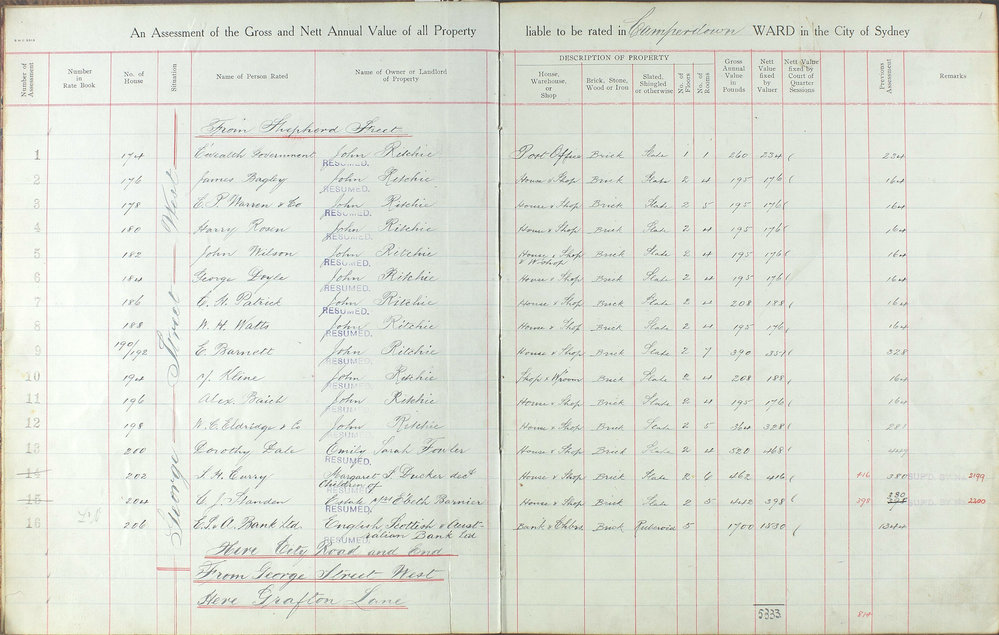 An Assessment of the Gross and Nett Annual Value of all Property liable to be rated in Camperdown WARD in the City of Sydney
1
DESCRIPTION OF PROPERTY
Number of Assessment | Number in Rate Book | No. of House | Situation | Name of Person Rated | Name of Owner or Landlord of Property | House, Warehouse, or Shop | Brick, Stone, Wood or Iron | Slated, Shingled or otherwise | No. of Floors | No. of Rooms | Gross Annual Value in Pounds | Nett Value fixed by Valuer | Nett Value fixed by Court of Quarter Sessions | Previous Assessment | Remarks
George Street West
From Shepherd Street
1 174 C'wealth Government John Ritchie RESUMED. Post Office Brick Slate 1 1 260 234 234
2 176 James Bagley John Ritchie RESUMED. House & Shop Brick Slate 2 4 195 176 164
3 178 E. P. Warren & Co John Ritchie RESUMED. House & Shop Brick Slate 2 5 195 176 164
4 180 Harry Rosen John Ritchie RESUMED. House & Shop Brick Slate 2 4 195 176 164
5 182 John Wilson John Ritchie RESUMED. House & Shop & W'shop Brick Slate 2 4 195 176 164
6 184 George Doyle John Ritchie RESUMED. House & Shop Brick Slate 2 4 195 176 164
7 186 Patrick John Ritchie RESUMED. House & Shop Brick Slate 2 4 208 188 164
8 188 W. H. Watts John Ritchie RESUMED. House & Shop Brick Slate 2 4 195 176 164
9 190/192 E. Barnett John Ritchie RESUMED. House & Shop Brick Slate 2 7 390 351 328
10 194 Kline John Ritchie RESUMED. Shop & W'room Brick Slate 2 4 208 188 164
11 196 Alex. Baich John Ritchie RESUMED. House & Shop Brick Slate 2 4 195 176 164
12 198 W. C. Eldridge & Co John Ritchie RESUMED. House & Shop Brick Slate 2 5 364 328 281
13 200 Dorothy Dale Emily Sarah Fowler RESUMED. House & Shop Brick Slate 2 4 520 468
14 202 Curry Margaret J. Ducker decd RESUMED. House & Shop Brick Slate 2 6 462 416 416 380 SUP'D. BY No. 2199
15 204 C. J. Standen Children of Fredk Alst & Elth Barnier RESUMED. House & Shop Brick Slate 2 5 442 398 398 380 SUP'D. BY No. 2200
16 206 E.S. & A. Bank Ltd. English, Scottish & Aust-
ralian Bank Ltd RESUMED. Bank & Brick 5 1700 1530 1344
Here City Road and End
From George Street West
Here Grafton Lane
5333 814